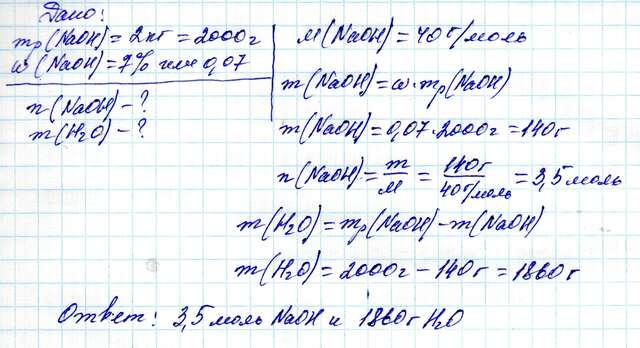 Дано:
mр(NaOH)=2кг=2000г
w(NaOH)=7% или 0,07
n(NaOH)-?
m(H2O)-?
M(NaOH)=40г/моль
m(NaOH)=w·mр(NaOH)
m(NaOH)=0,07·2000г=140г
n(NaOH)=m/M=140г/40г/моль=3,5моль
m(H2O)=mр(NaOH)-m(NaOH)
m(H2O)=2000г-140г=1860г
Ответ: 3,5моль NaOH и 1860г H2O